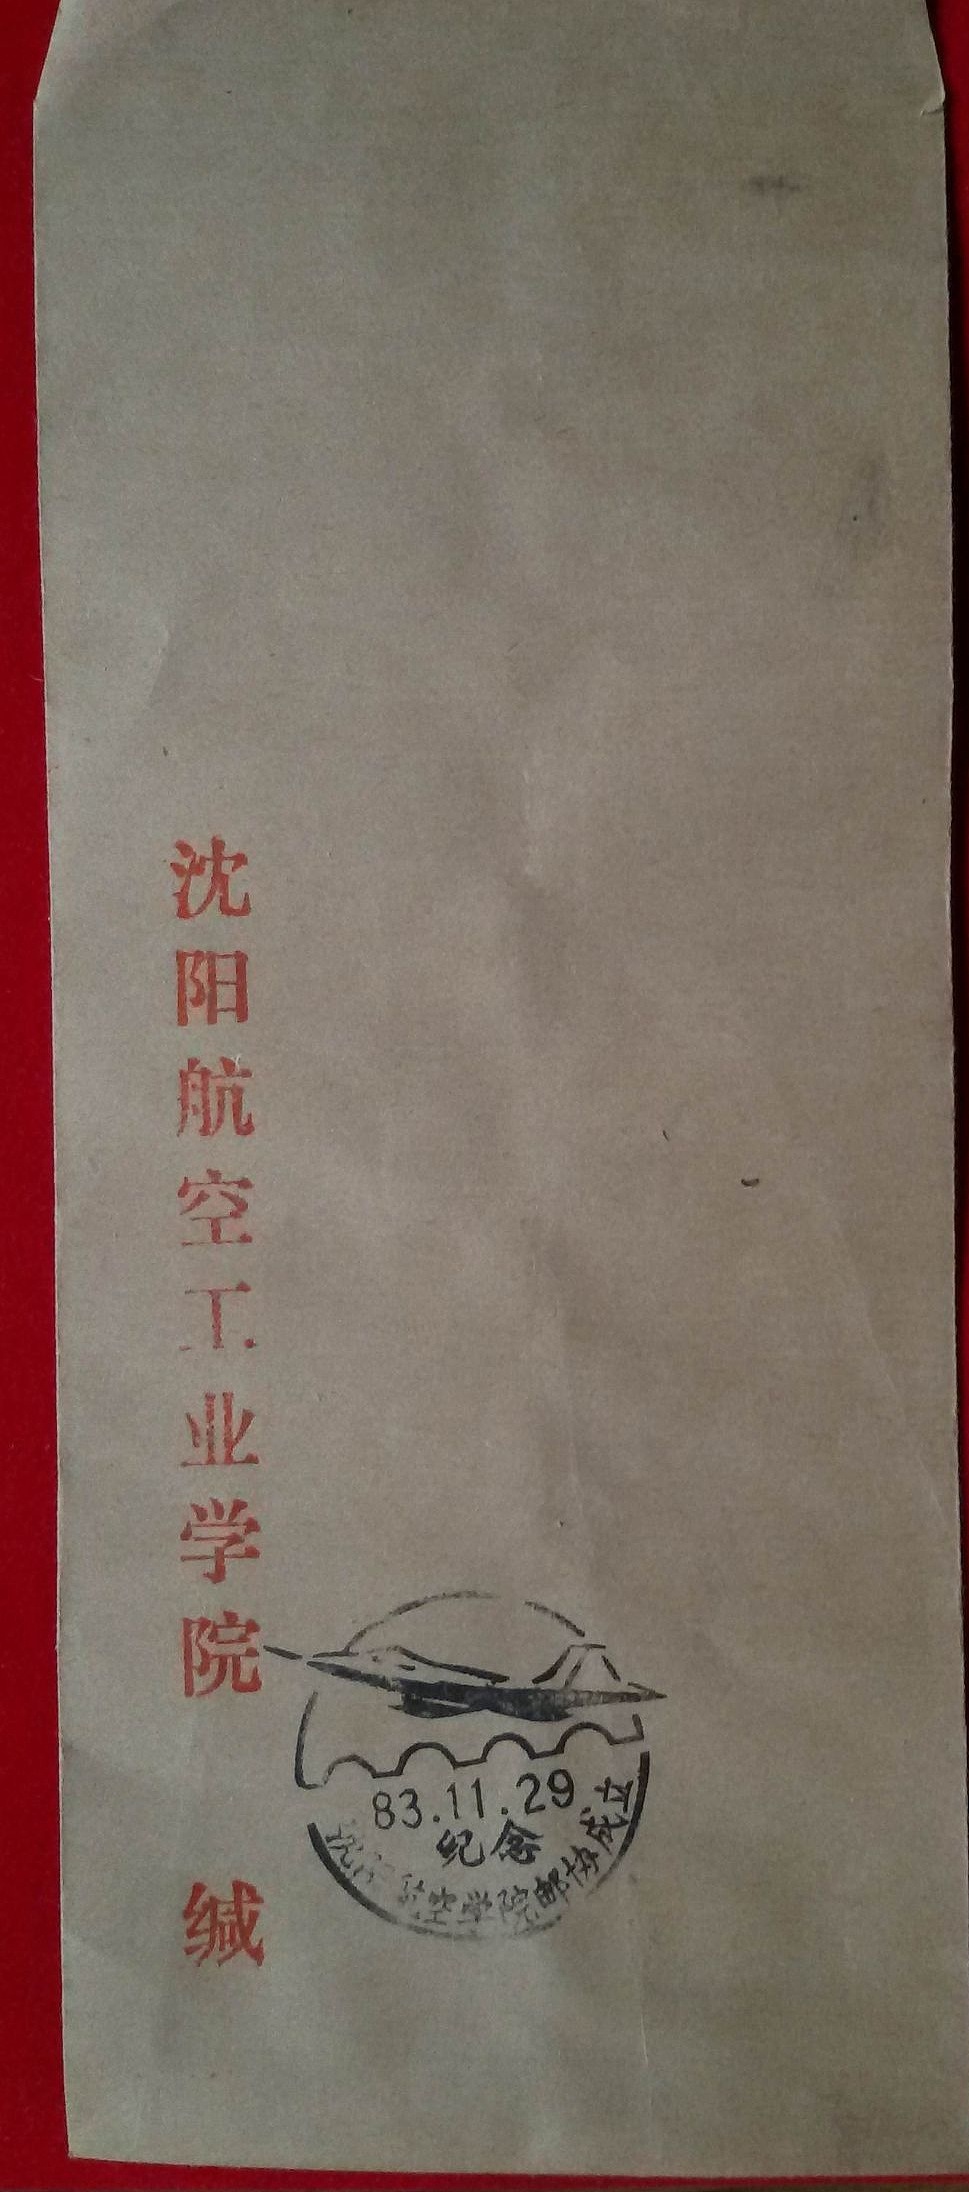 沈阳航空工业学院 缄
83.11.29
纪念
沈阳航空学院邮协成立